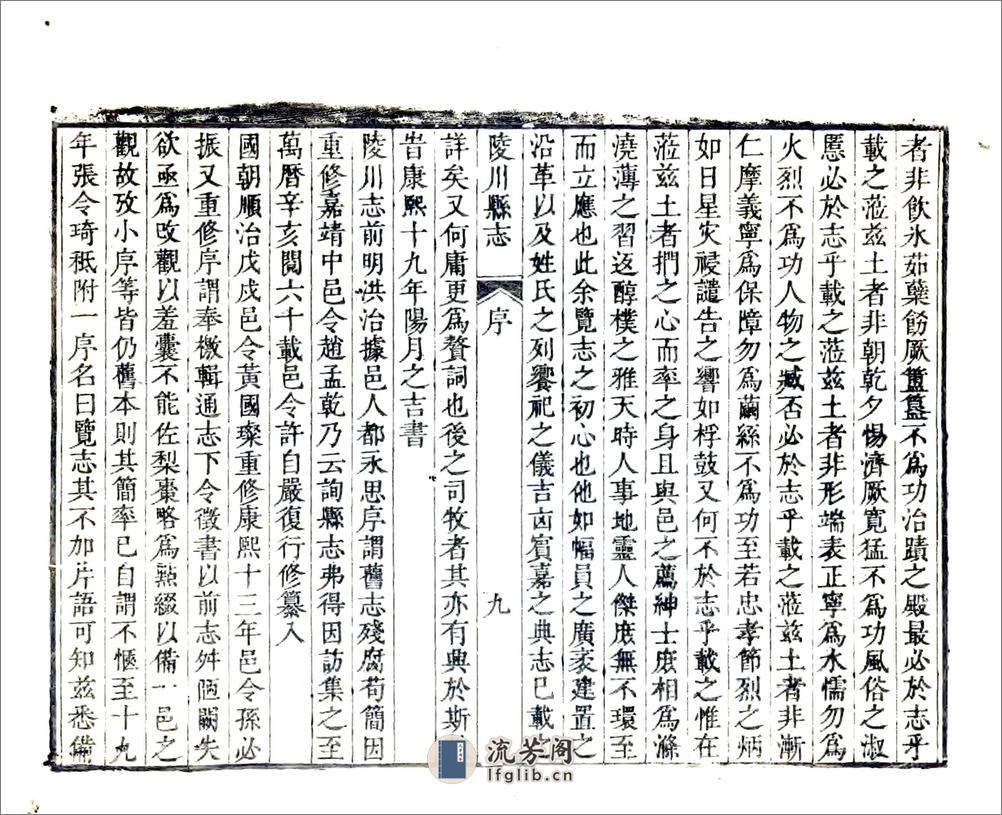 者非飲氷茹蘗飭厥簠簋不爲功治蹟之殿最必於志乎
載之蒞兹土者非朝乾夕惕濟厥寬猛不爲功風俗之淑
慝必於志乎載之蒞兹土者非形端表正寧爲水懦勿爲
火烈不爲功人物之臧否必於志乎載之蒞兹土者非漸
仁摩義寧爲保障勿爲繭絲不爲功至若忠孝節烈之炳
如日星灾祲譴告之響如桴鼓又何不於志乎載之惟在
蒞兹土者捫之心而率之身且與邑之薦紳士庶相爲滌
澆薄之習返醇樸之雅天時人事地靈人傑庶無不環至
而立應也此余覽志之初心也他如幅員之廣袤建置之
沿革以及姓氏之列饗祀之儀吉凶賓嘉之典志已載之
陵川縣志
序
九
詳矣又何庸更爲贅詞也後之司牧者其亦有興於斯
旹康熙十九年陽月之吉書
陵川志前明洪治據邑人都永思序謂舊志殘腐苟簡因
重修嘉靖中邑令趙孟乾乃云詢縣志弗得因訪集之至
萬曆辛亥閱六十載邑令許自嚴復行修纂入
國朝順治戊戌邑令黃國璨重修康熙十三年邑令孫必
振又重修序謂奉檄輯通志下令徵書以前志舛陋闕失
欲亟爲改觀以羞囊不能佐梨棗略爲㸃綴以備一邑之
觀故攷小序等皆仍舊本則其簡率已自謂不愜至十九
年張令琦秪附一序名曰覽志其不加片語可知兹悉備
流芳阁
lfglib.cn